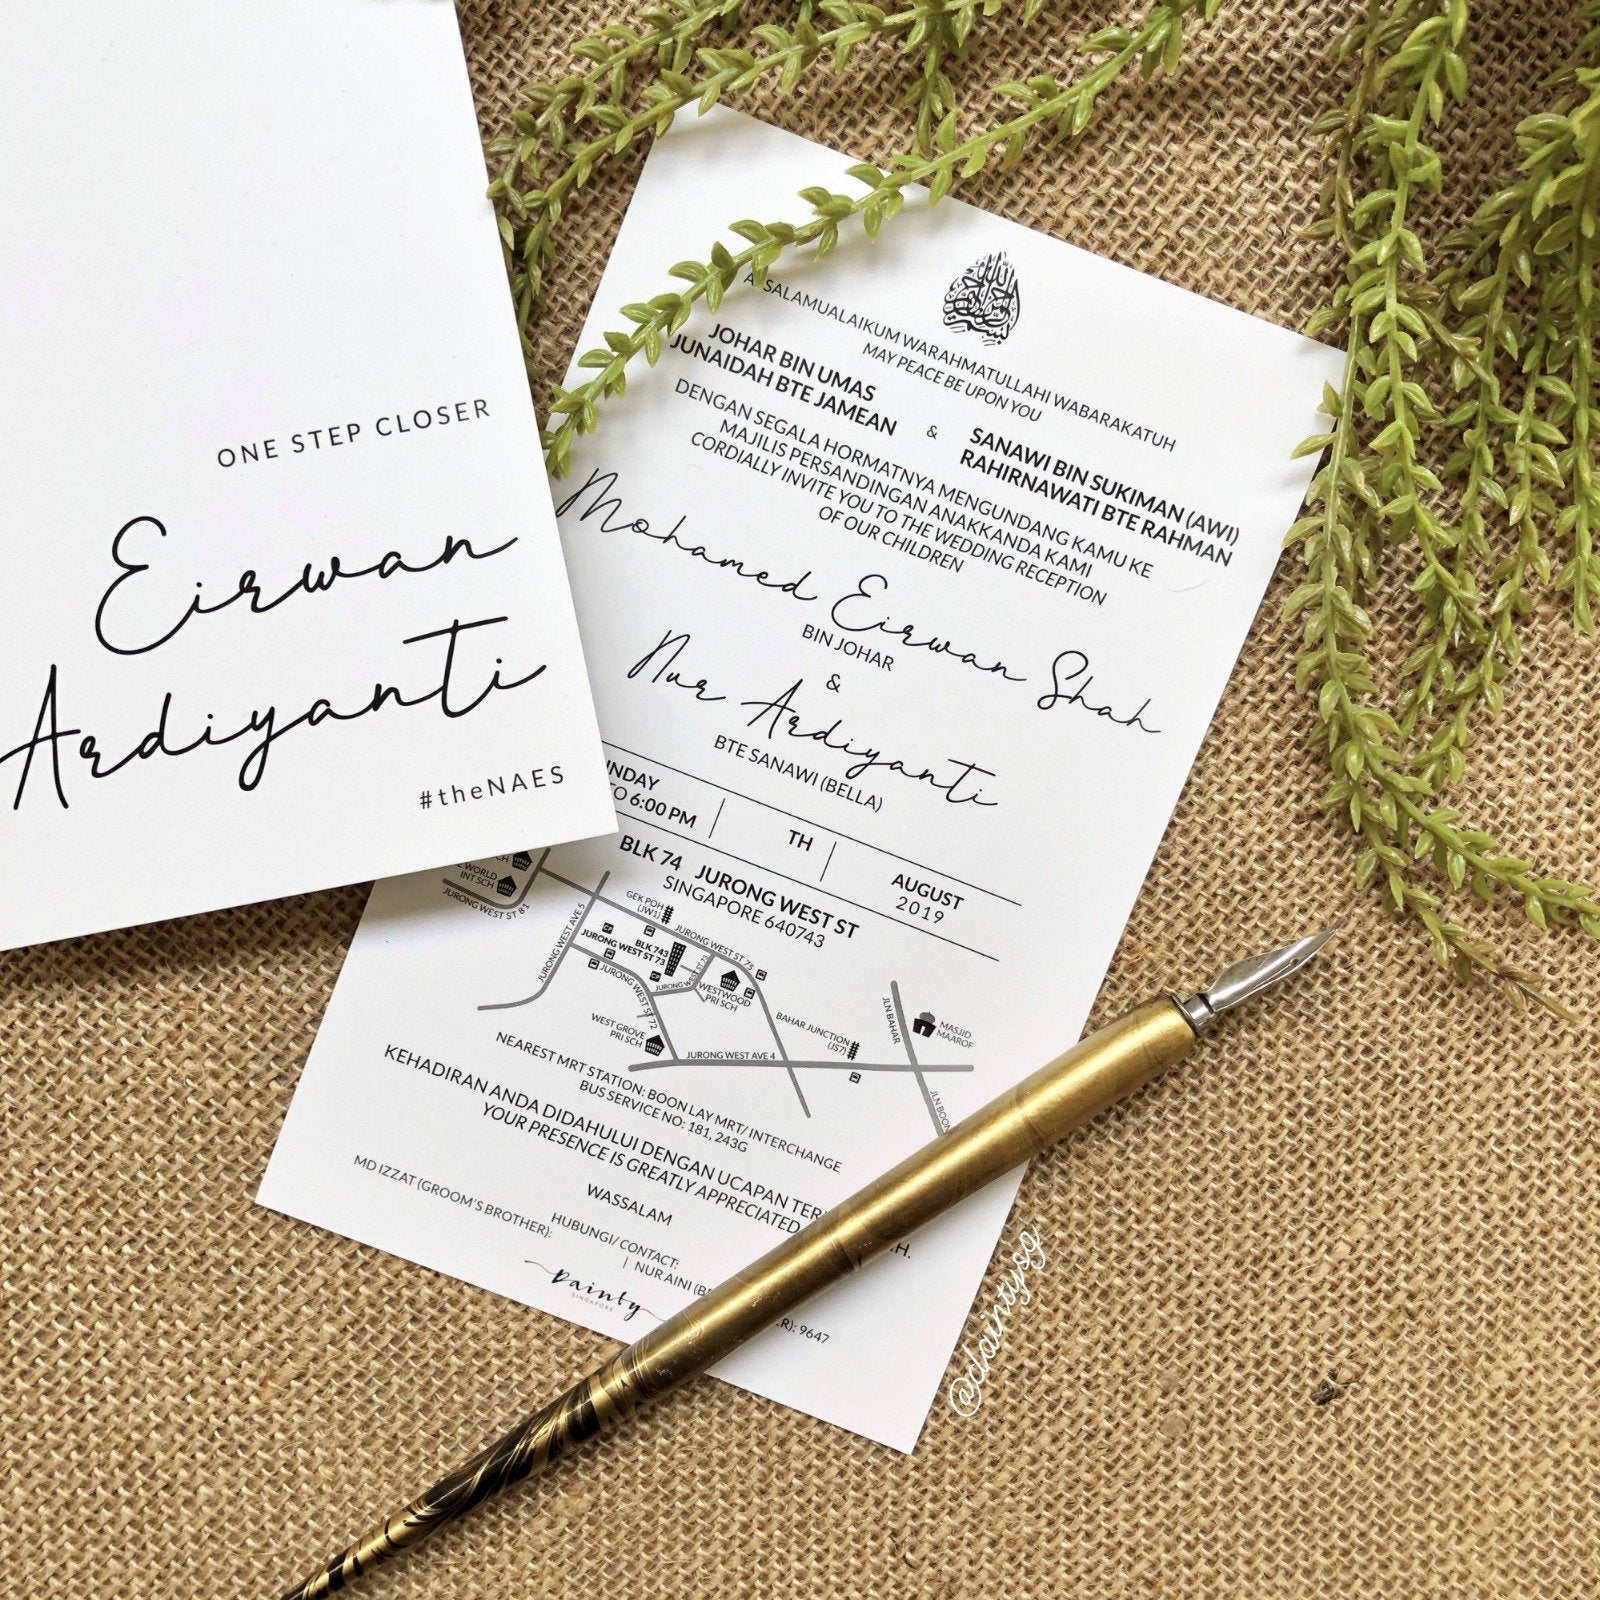 ONE STEP CLOSER
Eirwan
Ardiyanti
#theNAES
SALAMUALAIKUM WARAHMATULLAHI WABARAKATUH
MAY PEACE BE UPON YOU
JOHAR BIN UMAS
JUNAIDAH BTE JAMEAN
&
SANAWI BIN SUKIMAN (AWI)
RAHIRNAWATI BTE RAHMAN
DENGAN SEGALA HORMATNYA MENGUNDANG KAMU KE
MAJILIS PERSANDINGAN ANAKKANDA KAMI
CORDIALLY INVITE YOU TO THE WEDDING RECEPTION
OF OUR CHILDREN
Mohamed Eirwan Shah
BIN JOHAR
&
Nur Ardiyanti
BTE SANAWI (BELLA)
NDAY
TO 6:00 PM
TH
AUGUST
2019
BLK 74 JURONG WEST ST
SINGAPORE 640743
SCH
WORLD
INT SCH
JURONG WEST ST 81
JURONG WEST AVE 5
GEK POH
(JW1)
JURONG WEST ST 75
BLK 743
JURONG WEST ST 73
JURONG WEST ST 72
WESTWOOD
PRI SCH
WEST GROVE
PRI SCH
BAHAR JUNCTION
(JS7)
JURONG WEST AVE 4
JLN BAHAR
MASJID
MAAROF
JLN BOON
NEAREST MRT STATION: BOON LAY MRT/ INTERCHANGE
BUS SERVICE NO: 181, 243G
KEHADIRAN ANDA DIDAHULUI DENGAN UCAPAN
YOUR PRESENCE IS GREATLY APPRECIATED
WASSALAM
HUBUNGI/ CONTACT:
MD IZZAT (GROOM'S BROTHER):
| NUR AINI
9647
Dainty
SINGAPORE
@daintysg